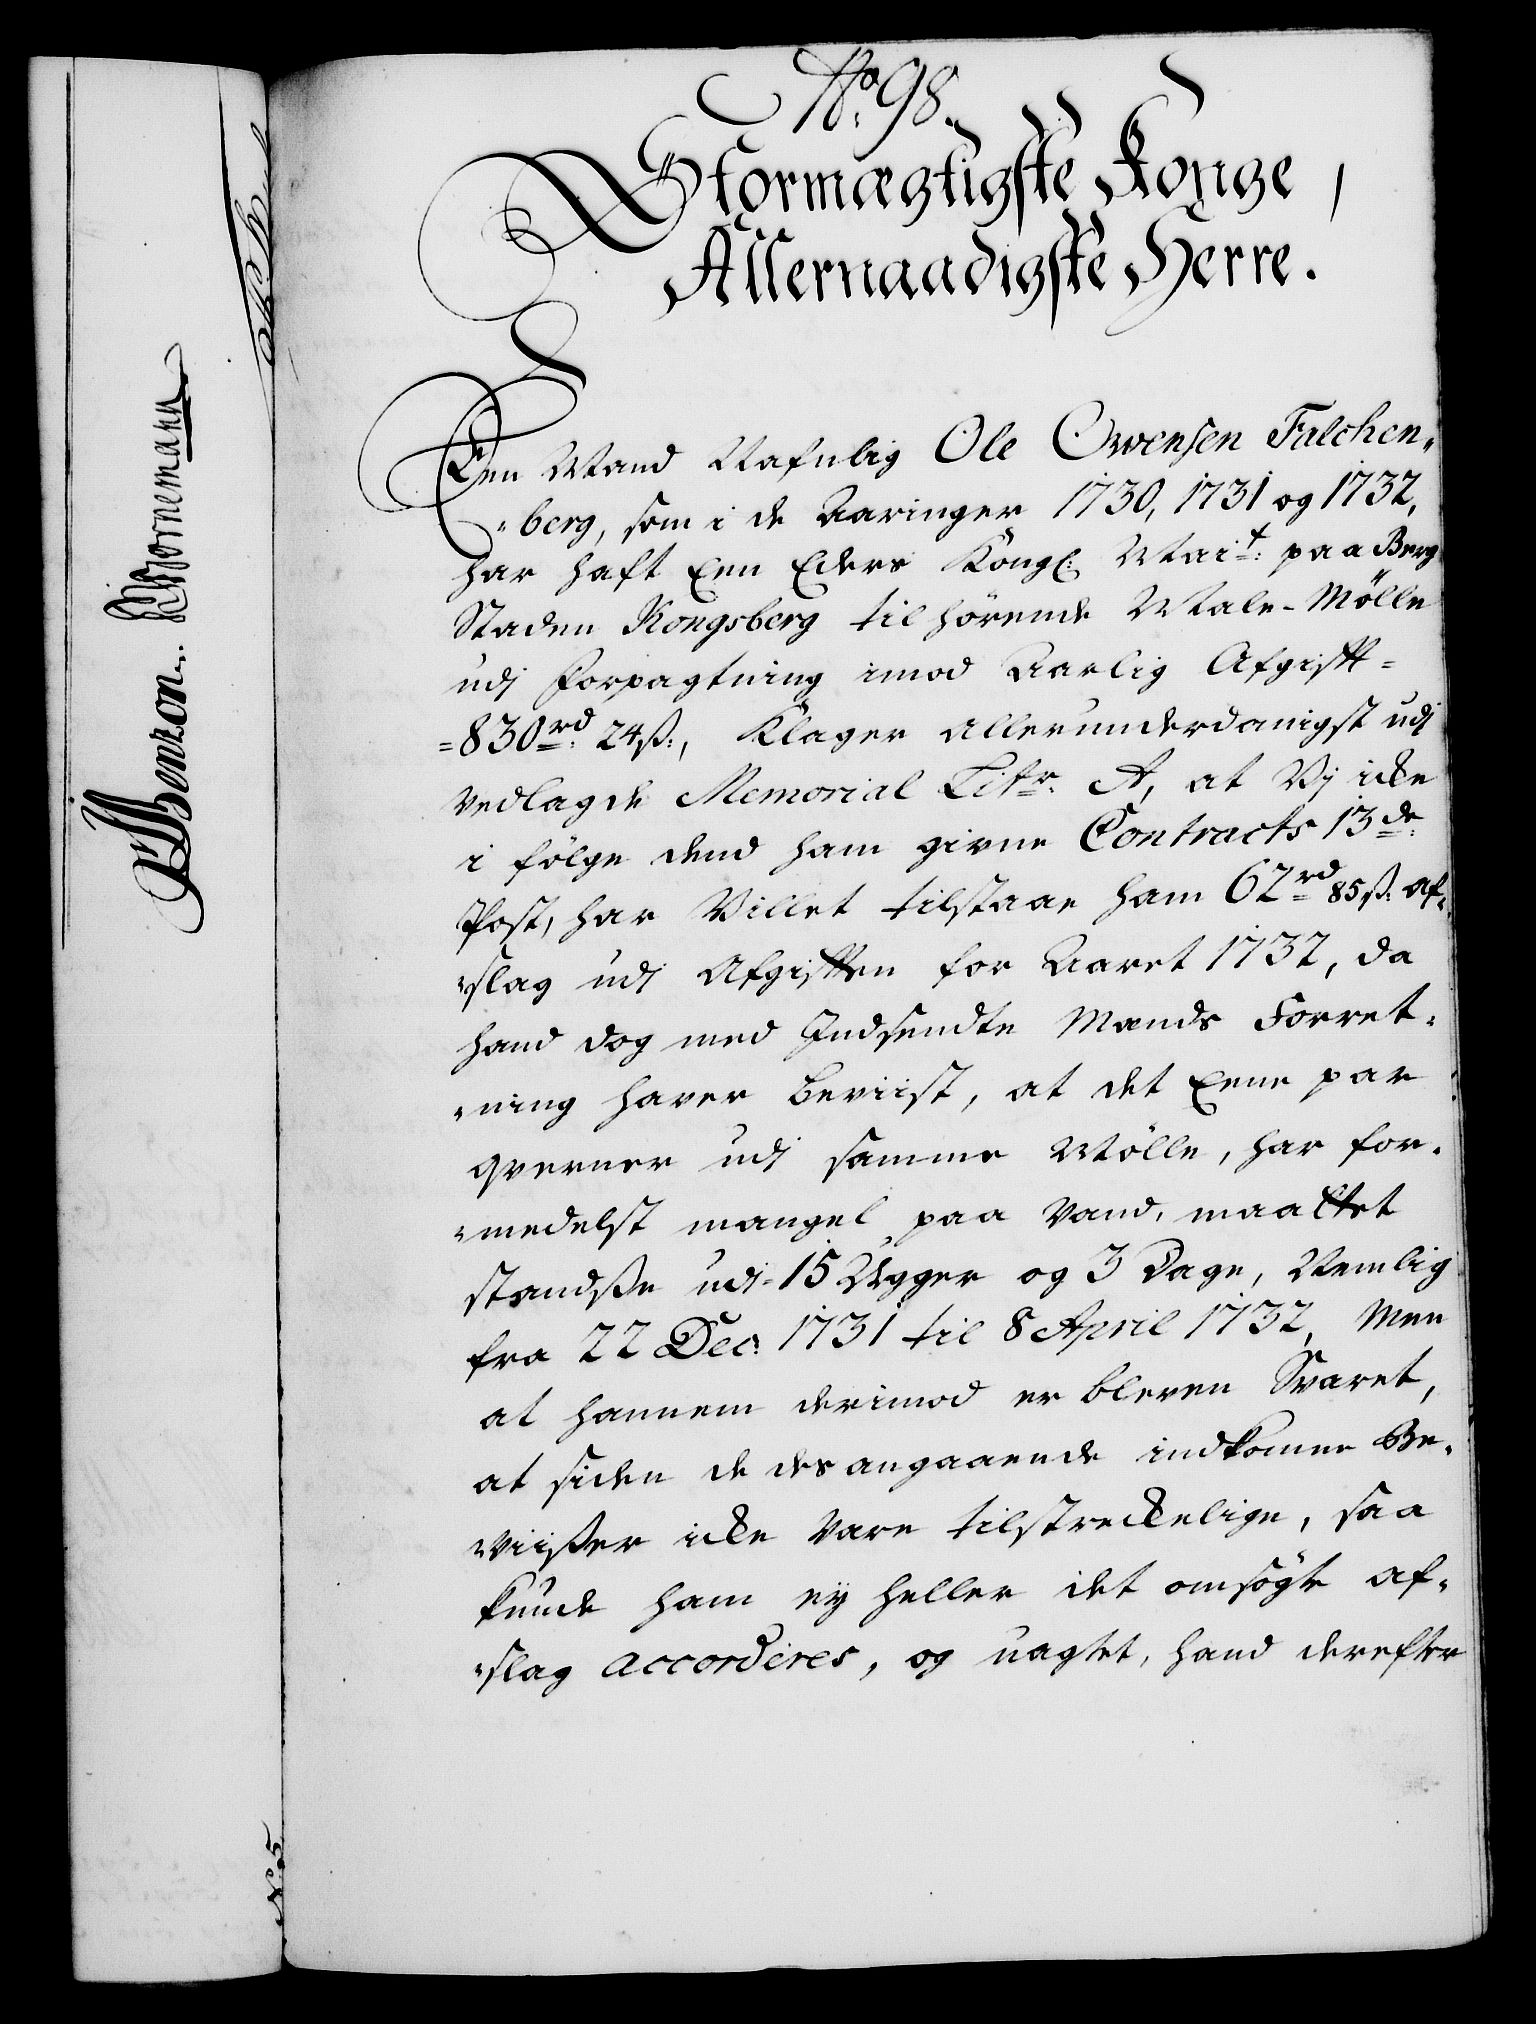 No. 98.
Stormægtigste Konge,
Allernaadigste Herre.
Een Mand Nafnlig Ole Owensen Falchen„
„berg, som i de Aaringer 1730, 1731 og 1732,
har haft Een Eders Kongl: Mait: paa Berg
Staden Kongsberg tilhörende Male-Mölle
udj Forpagtning imod Aarlig Afgift =
=830rd: 24ß:, Klager allerunderdanigst udj
vedlagde Memorial Litr: A, at Vj icke
i fölge dend ham givne Contracts 13de:
Post, har Villet tilstaae ham 62rd 85ß: af„
„slag udj Afgiften for Aaret 1732, da
hand dog med Indsendte Mænds Forret„
„ning haver beviist, at det Eene par
qverner udj samme Mölle, har for„
„medelst mangel paa Vand, maattet
standße udj 15 Ugger og 3 Dage, Nemlig
fra 22 Dec: 1731 til 8 April 1732, Men
at hannem derimod er bleven Svaret,
at siden de desangaaende indkomne Be„
„viißer icke vare tilstreckelige, saa
kunde ham ey heller det omsögte af„
„slag accorderes, og uagtet, hand derefter
Benzon. Bornemann
No. 5